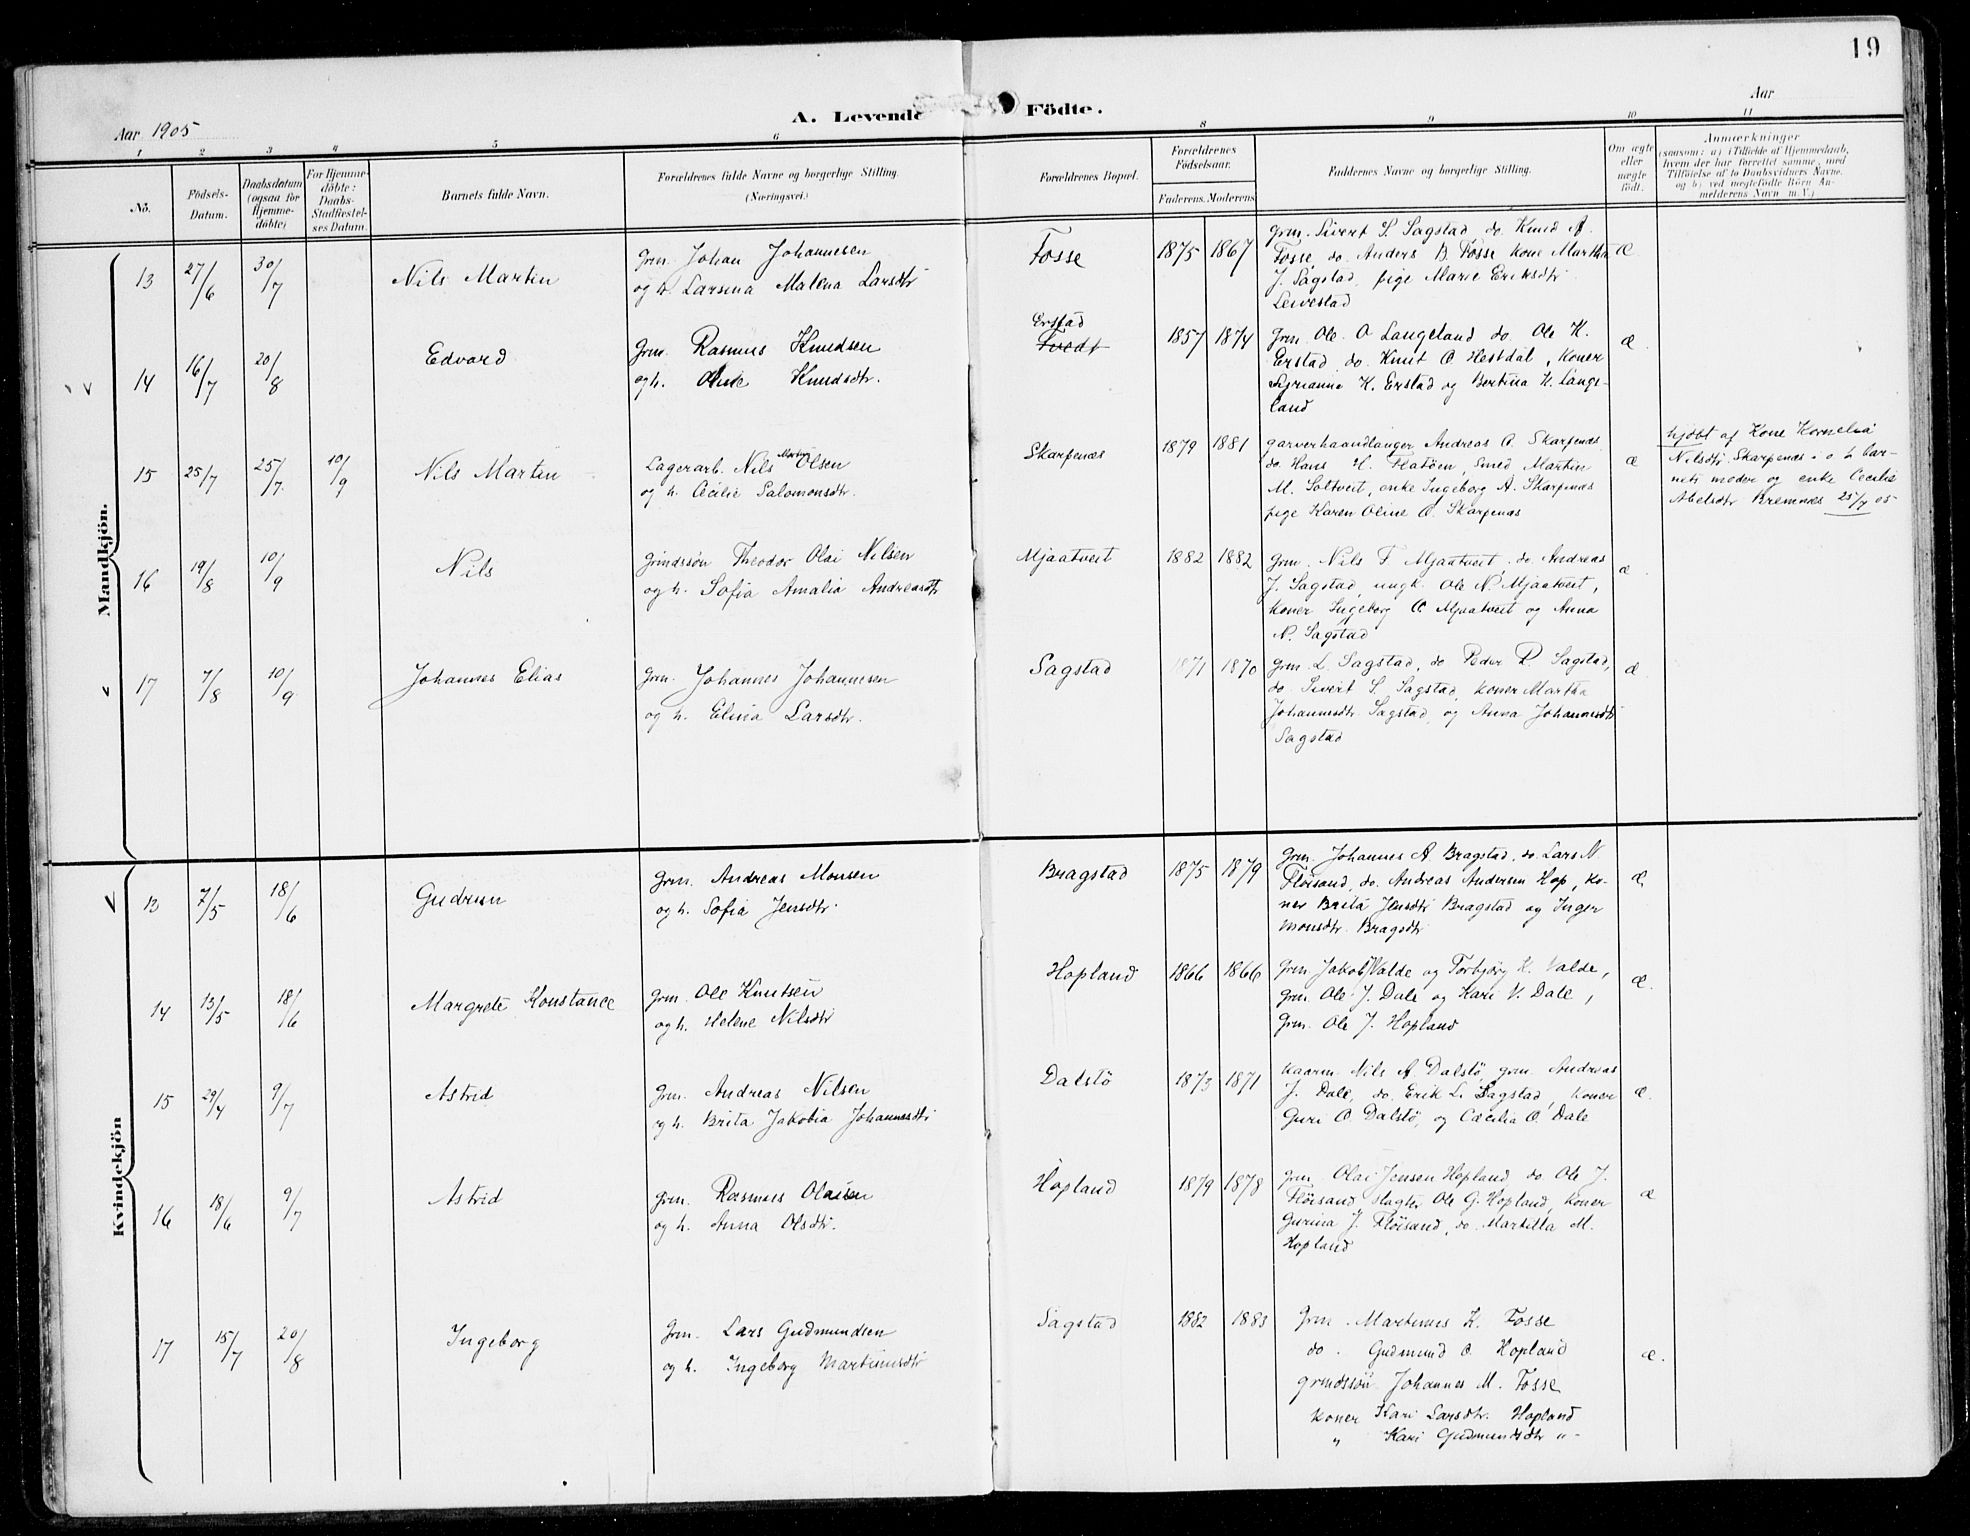 19
Aar 1905
A. Levende Födte.
Aar
1 2 3 4 5 6 8 9 10 11
No.
Födsels-Datum.
Daabsdatum (ogsaa for Hjemmedöbte)
For Hjemmedöbte: Daabs-Stadfæstelses Datum.
Barnets fulde Navn.
Forældrenes fulde Navne og borgerlige Stilling. (Næringsvei.)
Forældrenes Bopæl.
Forældrenes Födselsaar.
Faderens. Moderens.
Faddernes Navne og borgerlige Stilling.
Om ægte eller uægte födt.
Anmærkninger
(saasom: a) i Tilfælde af Hjemmedaab,
hvem der har forrettet samme, med
Tilföielse af to Daabsvidners Navne.
og b) ved uægtefödte Börn Anmelderens Navn m. V.)
Mandkjön.
13 27/6 30/7 Nils Martin
Grm. Johan Johannesen
og h. Larsina Malena Larsdtr
Fosse 1875 1867
Grm. Sivert S. Sagstad do. Knud A.
Fosse do. Anders B. Fosse kone Martha
J. Sagstad, pige Marie Eriksdtr
Leivestad
Æ
14 16/7 20/8 Edvard
Grm. Rasmus Knudsen
og h. Knudsdtr.
Erstad
Tvedt
1857 1874
Grm. Ole O Langeland do. Ole K.
Erstad do. Knut O Hestdal, koner
Syrianna K. Erstad og Bertina K. Lange-
land
æ
15 25/7 25/7 10/9 Nils Martin
Lagerarb. Nils Martin Olsen
og h. Cecilie Salomonsdtr.
Skarpenæs 1879 1881
garverhaandlanger Andreas O. Skarpenæs
do. Hans H. Flatöen, Smed Martin
M. Soltveit, enke Ingeborg A. Skarpenæs
pige Karen Oline O. Skarpenæs
æ
hjdbt af Kone Kornelia
Nilsdtr. Skarpenæs i o h bar-
nets moder og enke Cecilie
Abelsdtr Bremnæs 25/7 05
16 19/8 10/9 Nils
Grmdssön Theodor Olai Nilsen
og h. Sofia Amalia Andreasdtr
Mjaatveit 1882 1882
Grm. Nils F Mjaatveit. do. Andreas
J. Sagstad, ungk. Ole N. Mjaatveit,
koner Ingeborg O. Mjaatveit og Anna
N. Sagstad
æ
17 7/8 10/9 Johannes Elias
Grm. Johannes Johannesen
og h. Elina Larsdtr.
Sagstad 1871 1870
Grm. L. Sagstad, do Peder P. Sagstad,
do. Sivert S. Sagstad, koner Martha
Johannesdtr. Sagstad, og Anna Johannesdtr
Sagstad
æ
Kvindekjön
13 7/5 18/6 Gudrun
Grm. Andreas Monsen
og h. Sofia Jensdtr.
Bragstad 1875 1879
Grm. Johannes A. Bragstad. do. Lars N.
Flöisand, do. Andreas Andersen Hop, ko-
ner Brita Jensdtr Bragstad og Inger
Monsdtr. Bragsdtr
æ
14 13/5 18/6 Margrete Konstance
Grm. Ole Knutsen
og h. Helene Nilsdtr
Hopland 1866 1866
Grm Jakob Valde og Torbjørg K. Valde,
Grm. Ole J. Dale og Kari V. Dale,
Grm. Ole J. Hopland
æ.
15 29/4 9/7 Astrid
Grm. Andreas Nilsen
og h. Brita Jakobia Johannesdtr
Dalstö 1873 1871
Kaarm. Nils A Dalstö, grm. Andreas
J. Dale, do. Erik L. Sagstad, koner
Guri O. Dalstø, og Cæcilia O. Dale
æ.
16 18/6 9/7 Astrid
Grm. Rasmus Olaisen
og h. Anna Olsdtr.
Hopland 1879 1878
Grm. Olai Jensen Hopland do Ole J.
Flöisand, slagter Ole G. Hopland, koner
Gurina J. Flöisand, do. Markitta M.
Hopland
æ
17 15/7 20/8 Ingeborg
Grm. Lars Gudmundsen
og h. Ingeborg Martinusdtr
Sagstad 1882 1883
Grm. Martinus K. Fosse
do. Gudmund O. Hopland
grmdssön. Johannes M. Fosse
koner Kari Larsdtr. Hopland
" Kari Gudmundsdtr "
æ.